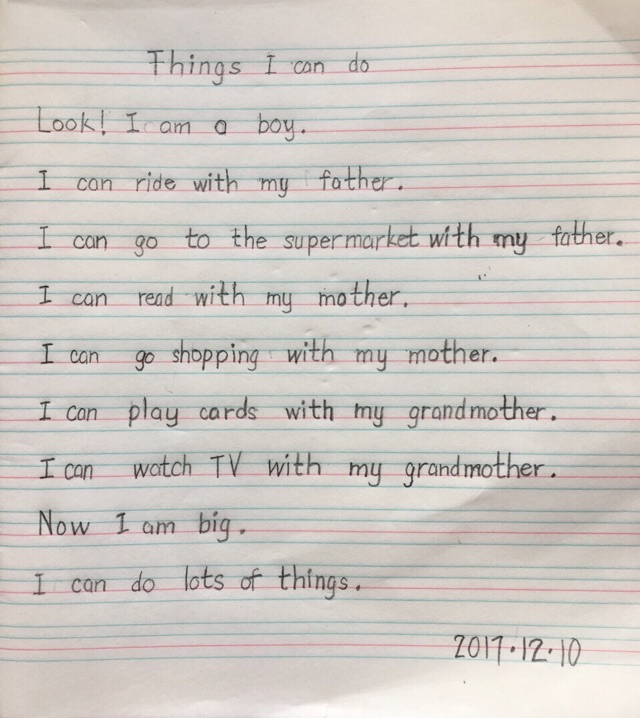 Things I can do
Look! I am a boy.
I can ride with my father.
I can go to the supermarket with my father.
I can read with my mother.
I can go shopping with my mother.
I can play cards with my grandmother.
I can watch TV with my grandmother.
Now I am big.
I can do lots of things.
2017.12.10